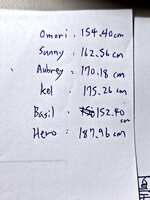 Omori : 154.40cm
Sunny : 162.56 cm
Aubrey : 170.18 cm
kel : 175.26 cm
Basil : 152.40 cm
Hero : 187.96 cm